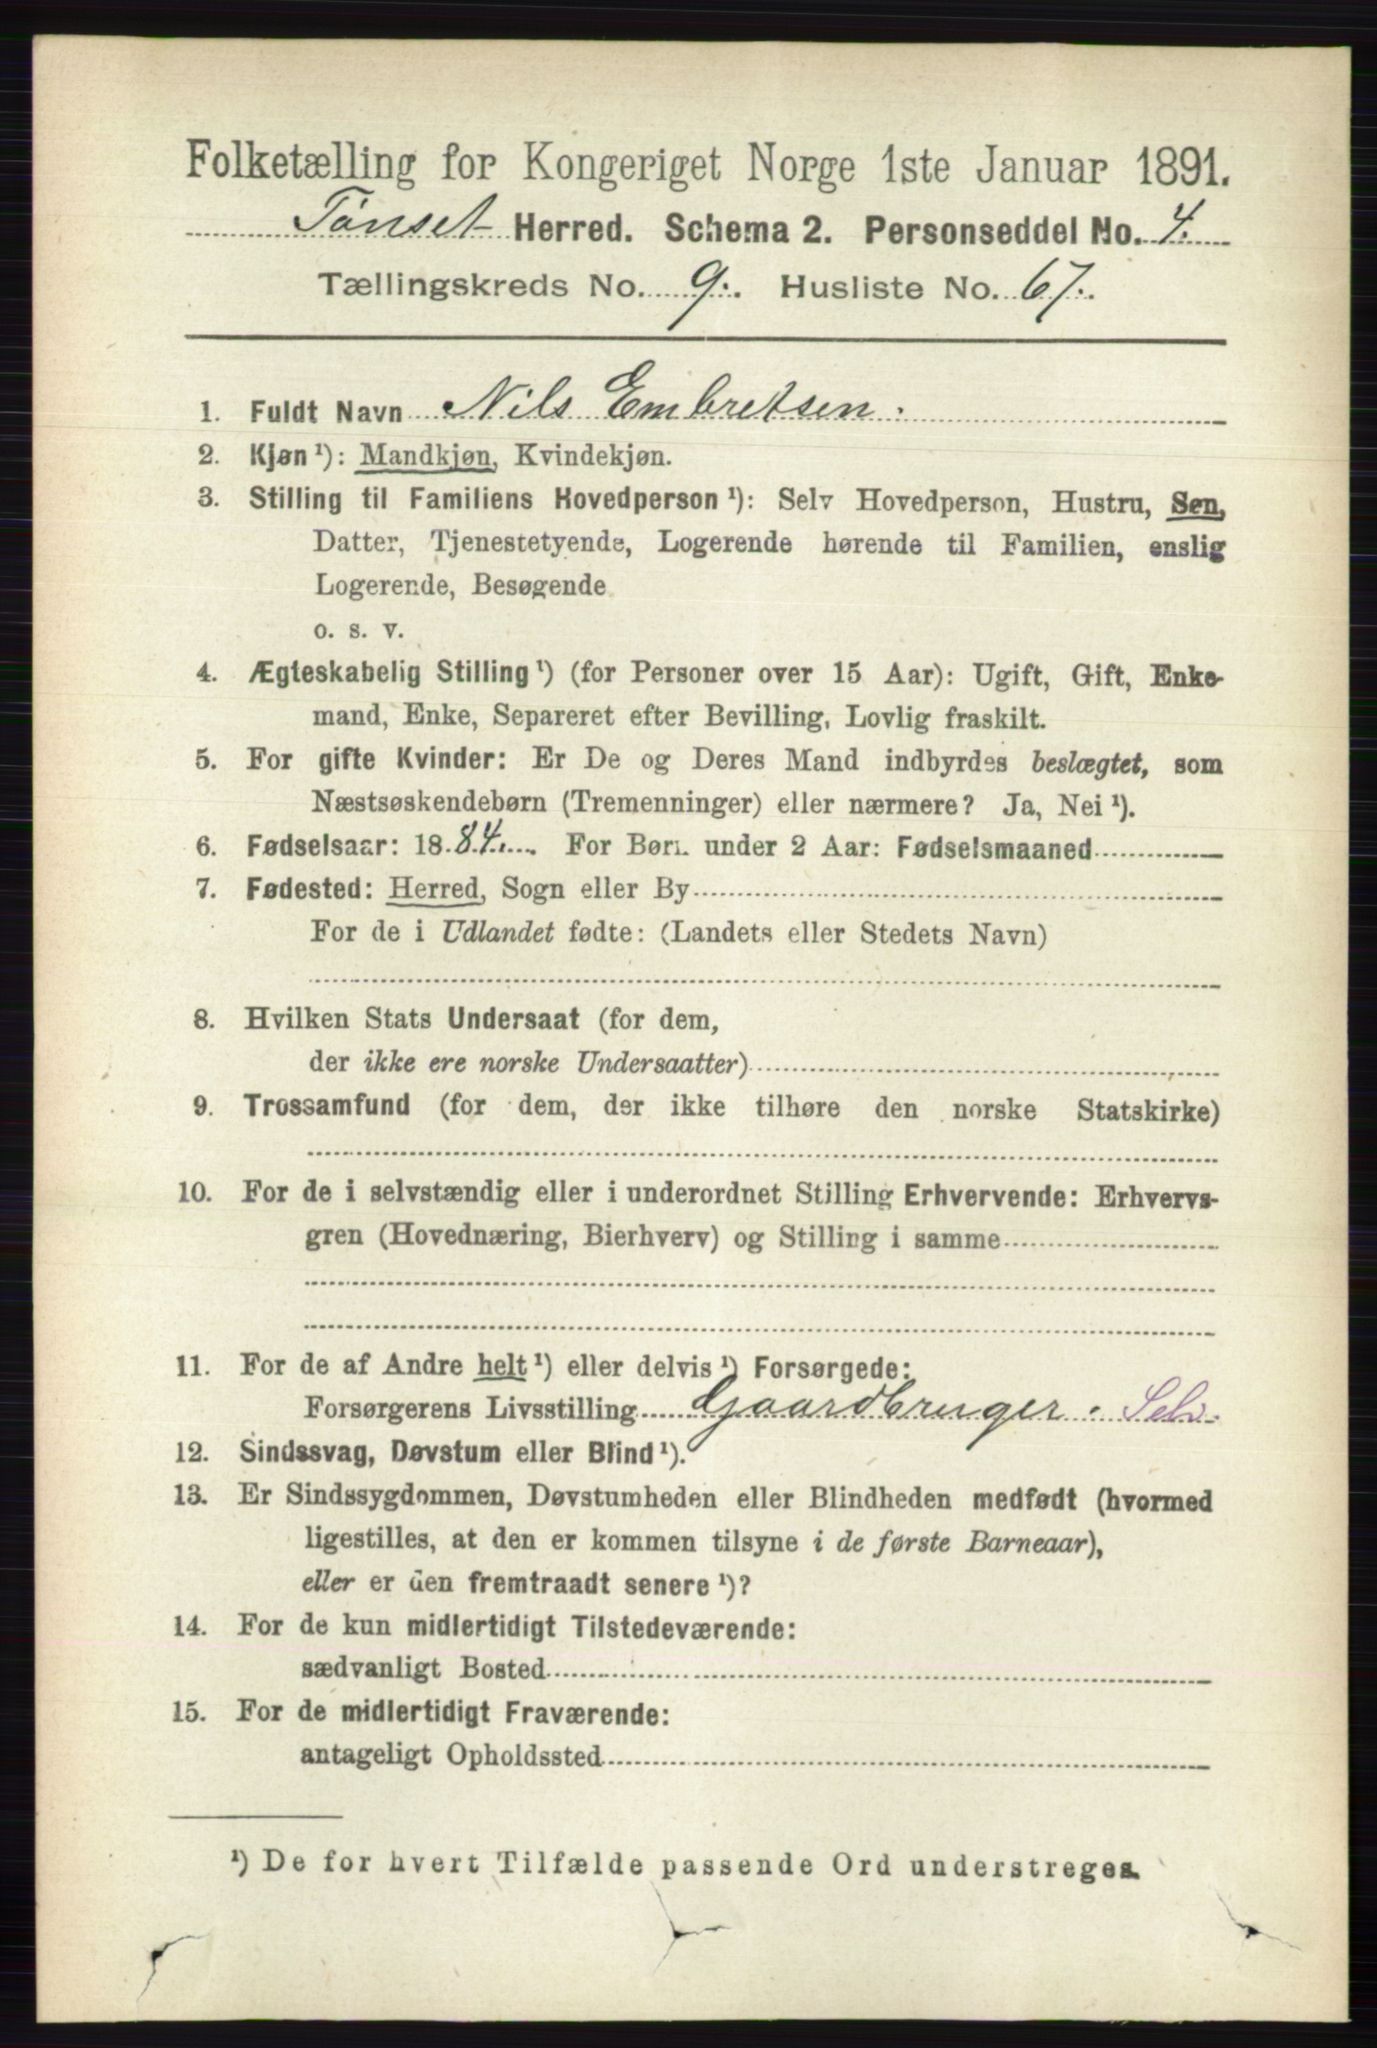 Folketælling for Kongeriget Norge 1ste Januar 1891.
Tønset Herred. Schema 2. Personseddel No. 4.
Tællingskreds No. 9. Husliste No. 67.
1. Fuldt Navn Nils Embretsen.
2. Kjøn ¹): Mandkjøn, Kvindekjøn.
3. Stilling til Familiens Hovedperson ¹): Selv Hovedperson, Hustru, Søn,
Datter, Tjenestetyende, Logerende hørende til Familien, enslig
Logerende, Besøgende
o. s. v.
4. Ægteskabelig Stilling ¹) (for Personer over 15 Aar): Ugift, Gift, Enke-
mand, Enke, Separeret efter Bevilling, Lovlig fraskilt.
5. For gifte Kvinder: Er De og Deres Mand indbyrdes beslægtet, som
Næstsøskendebørn (Tremenninger) eller nærmere? Ja, Nei ¹).
6. Fødselsaar: 1884. For Børn under 2 Aar: Fødselsmaaned
7. Fødested: Herred, Sogn eller By
For de i Udlandet fødte: (Landets eller Stedets Navn)
8. Hvilken Stats Undersaat (for dem,
der ikke ere norske Undersaatter)
9. Trossamfund (for dem, der ikke tilhøre den norske Statskirke)
10. For de i selvstændig eller i underordnet Stilling Erhvervende: Erhvervs-
gren (Hovednæring, Bierhverv) og Stilling i samme
11. For de af Andre helt ¹) eller delvis ¹) Forsørgede:
Forsørgerens Livsstilling Gaardbruger. Selv.
12. Sindssvag, Døvstum eller Blind ¹).
13. Er Sindssygdommen, Døvstumheden eller Blindheden medfødt (hvormed
ligestilles, at den er kommen tilsyne i de første Barneaar),
eller er den fremtraadt senere ¹)?
14. For de kun midlertidigt Tilstedeværende:
sædvanligt Bosted
15. For de midlertidigt Fraværende:
antageligt Opholdssted
¹) De for hvert Tilfælde passende Ord understreges.